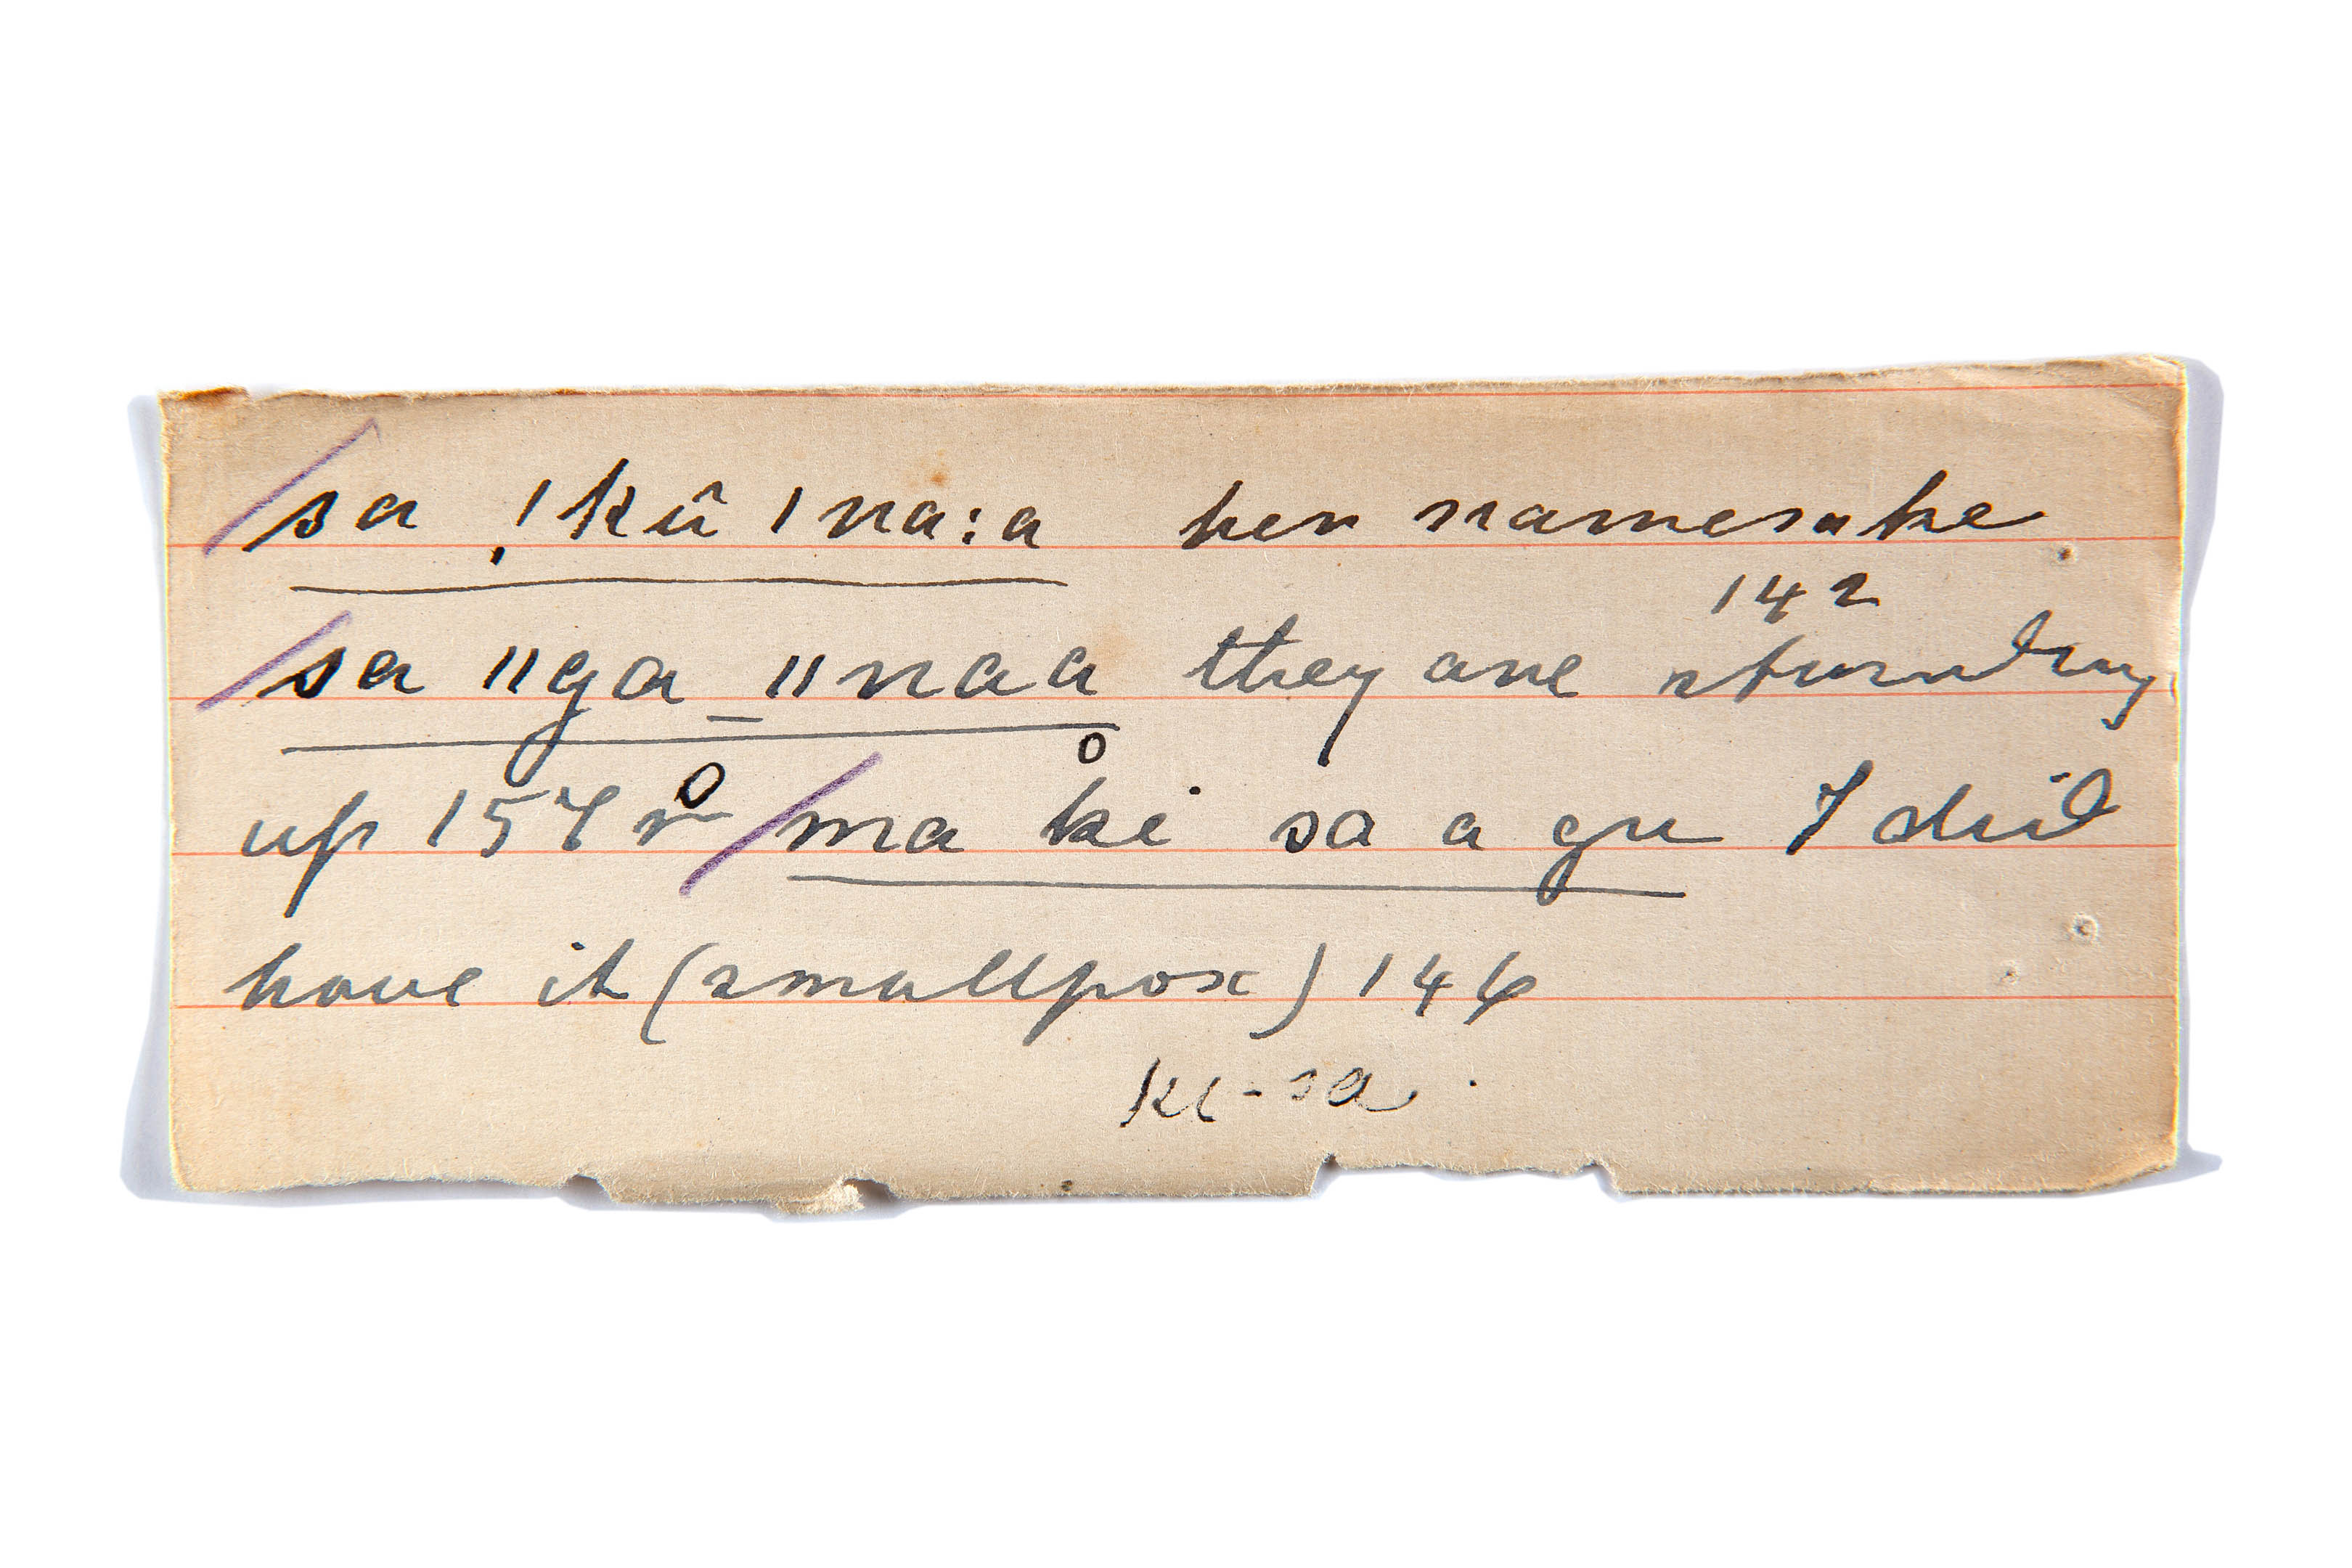 /sa !̣kû |na:a her namesake
142
/sa ‖ga _ ‖naa they are standing
up 157 r /ma ki sa a gu I did
have it (smallpox) 146
ki-sa.